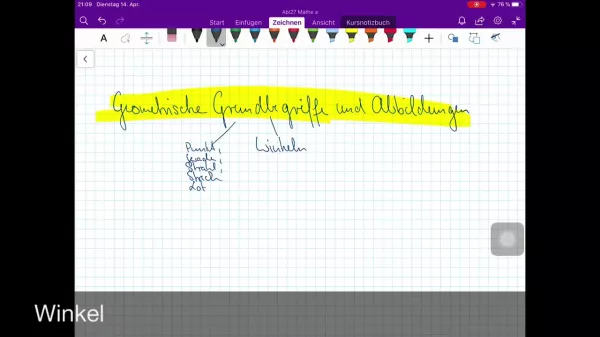 21:09 Dienstag 14. Apr.
Abi27 Mathe a
76 %
Start Einfügen Zeichnen Ansicht Kursnotizbuch
A
Geometrische Grundbegriffe und Abbildungen
Punkt, Winkeln
Gerade,
Strahl,
Strecke
Lot
Winkel